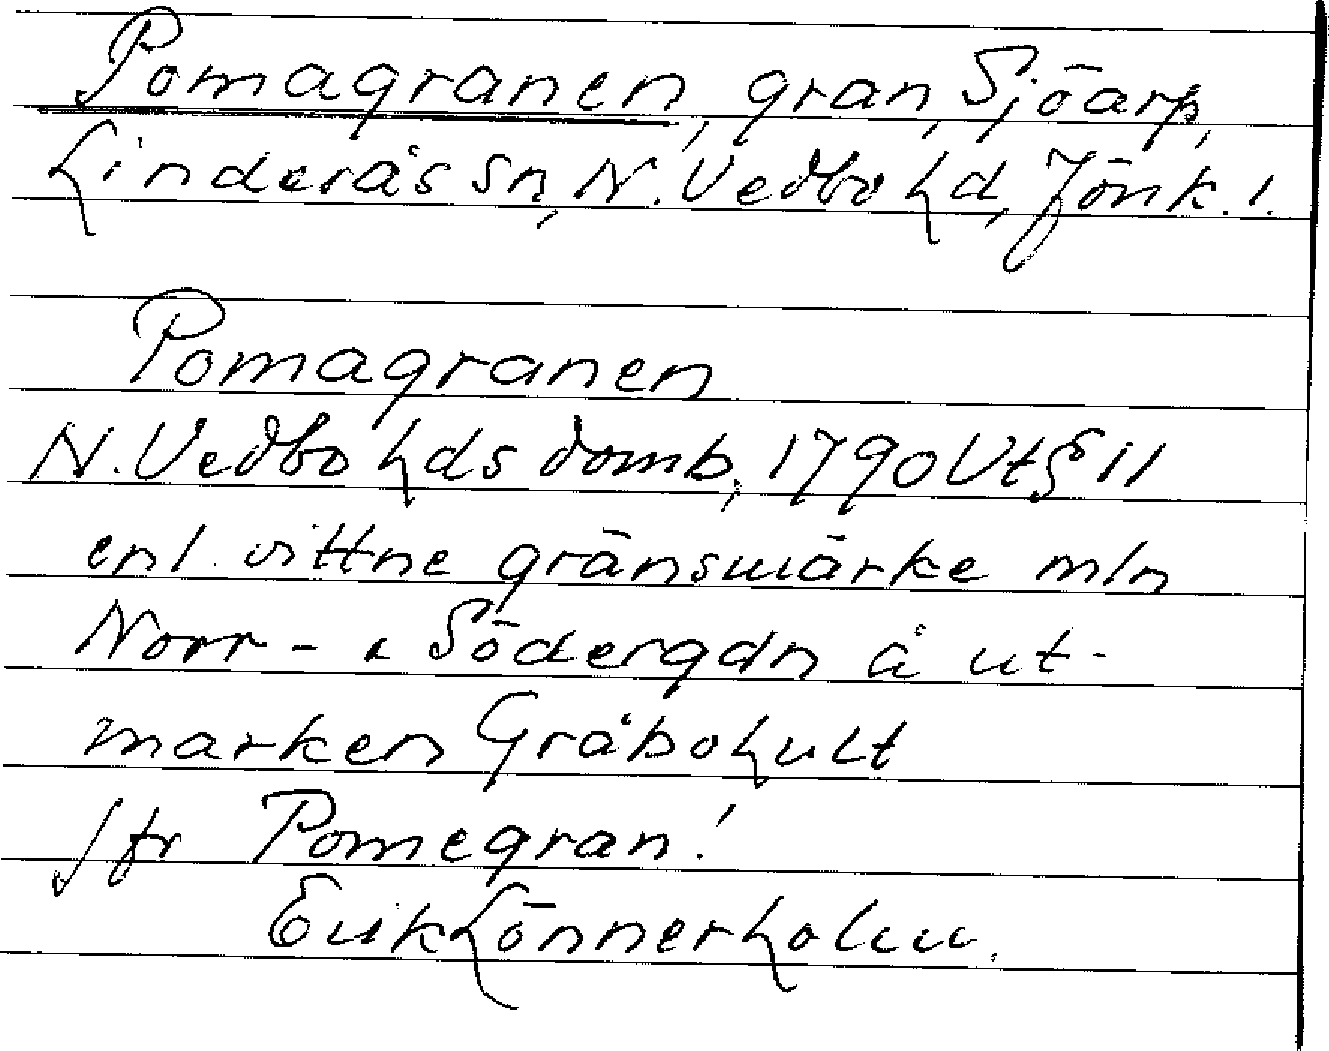 Pomagranen, gran, Sjöarp,
Linderås sn, N. Vedbo hd, Jönk. l.
Pomagranen
N. Vedbo hds domb, 1790 Vt § 11
enl. vittne gränsmärke mln
Norr- & Södergdn å ut-
marken Gråbohult
Jfr Pomegran!
Erik Lönnerholm.